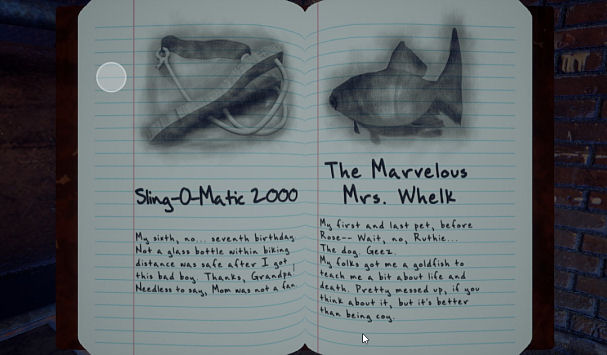 Sling-O-Matic 2000
My sixth, no... seventh birthday.
Not a glass bottle within biking
distance was safe after I got
this bad boy. Thanks, Grandpa!
Needless to say, Mom was not a fan.
The Marvelous
Mrs. Whelk
My first and last pet, before
Rose-- Wait, no, Ruthie...
The dog. Geez.
My folks got me a goldfish to
teach me a bit about life and
death. Pretty messed up, if you
think about it, but it's better
than being coy.